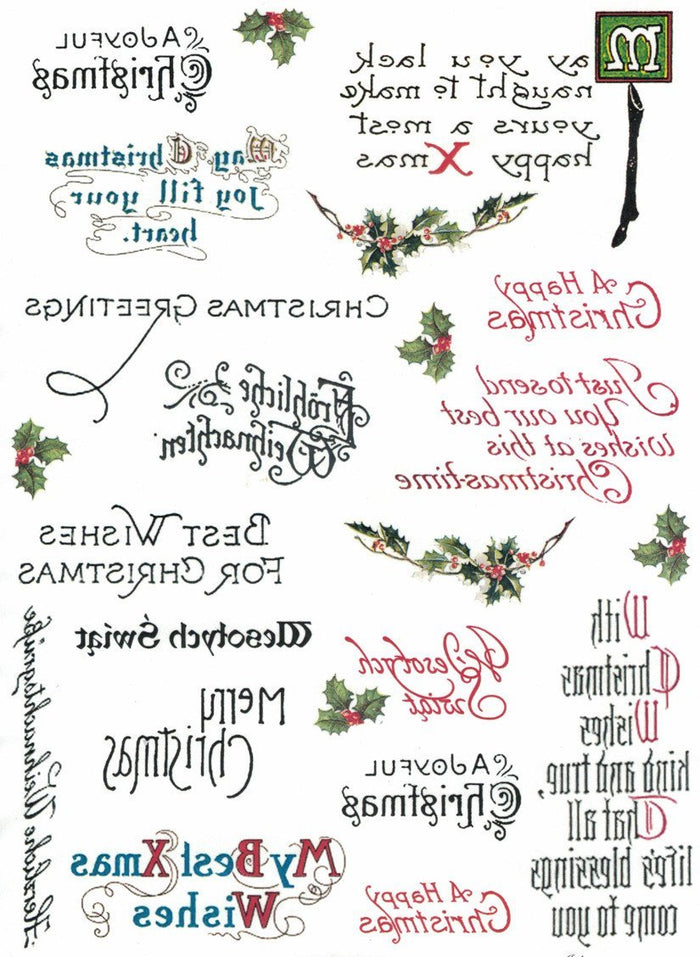 A Joyful
Christmas
May you lack
naught to make
yours a most
happy Xmas
May Christmas
Joy fill your
heart.
Christmas Greetings
A Happy
Christmas
Fröhliche
Weihnachten
Just to send
You our best
Wishes at this
Christmas-time
Best Wishes
For Christmas
Wesołych Świąt
Wesołych
Świąt
With
Christmas
Wishes
kind and true,
That all
life's blessings
come to you
Merry
Christmas
A Joyful
Christmas
My Best Xmas
Wishes
A Happy
Christmas
Herzliche